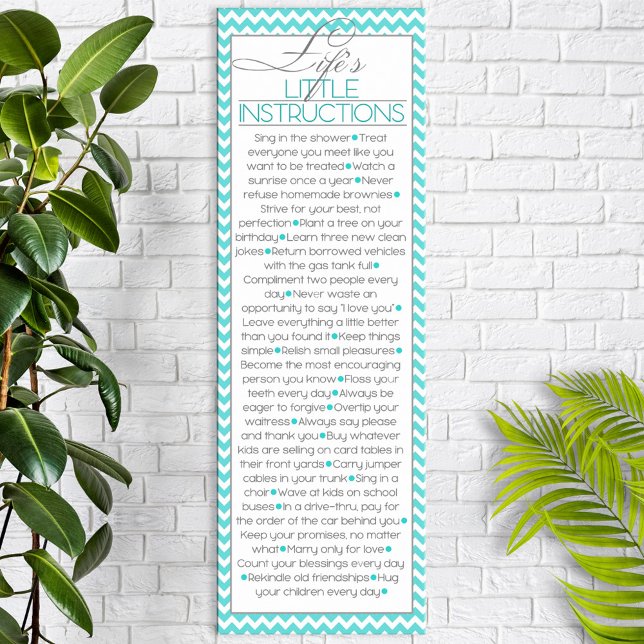 Life's
LITTLE
INSTRUCTIONS
Sing in the shower●Treat
everyone you meet like you
want to be treated●Watch a
sunrise once a year●Never
refuse homemade brownies●
Strive for your best, not
perfection●Plant a tree on your
birthday●Learn three new clean
jokes●Return borrowed vehicles
with the gas tank full●
Compliment two people every
day●Never waste an
opportunity to say "I love you"●
Leave everything a little better
than you found it●Keep things
simple●Relish small pleasures●
Become the most encouraging
person you know●Floss your
teeth every day●Always be
eager to forgive●Overtip your
waitress●Always say please
and thank you●Buy whatever
kids are selling on card tables in
their front yards●Carry jumper
cables in your trunk●Sing in a
choir●Wave at kids on school
buses●In a drive-thru, pay for
the order of the car behind you●
Keep your promises, no matter
what●Marry only for love●
Count your blessings every day
●Rekindle old friendships●Hug
your children every day●